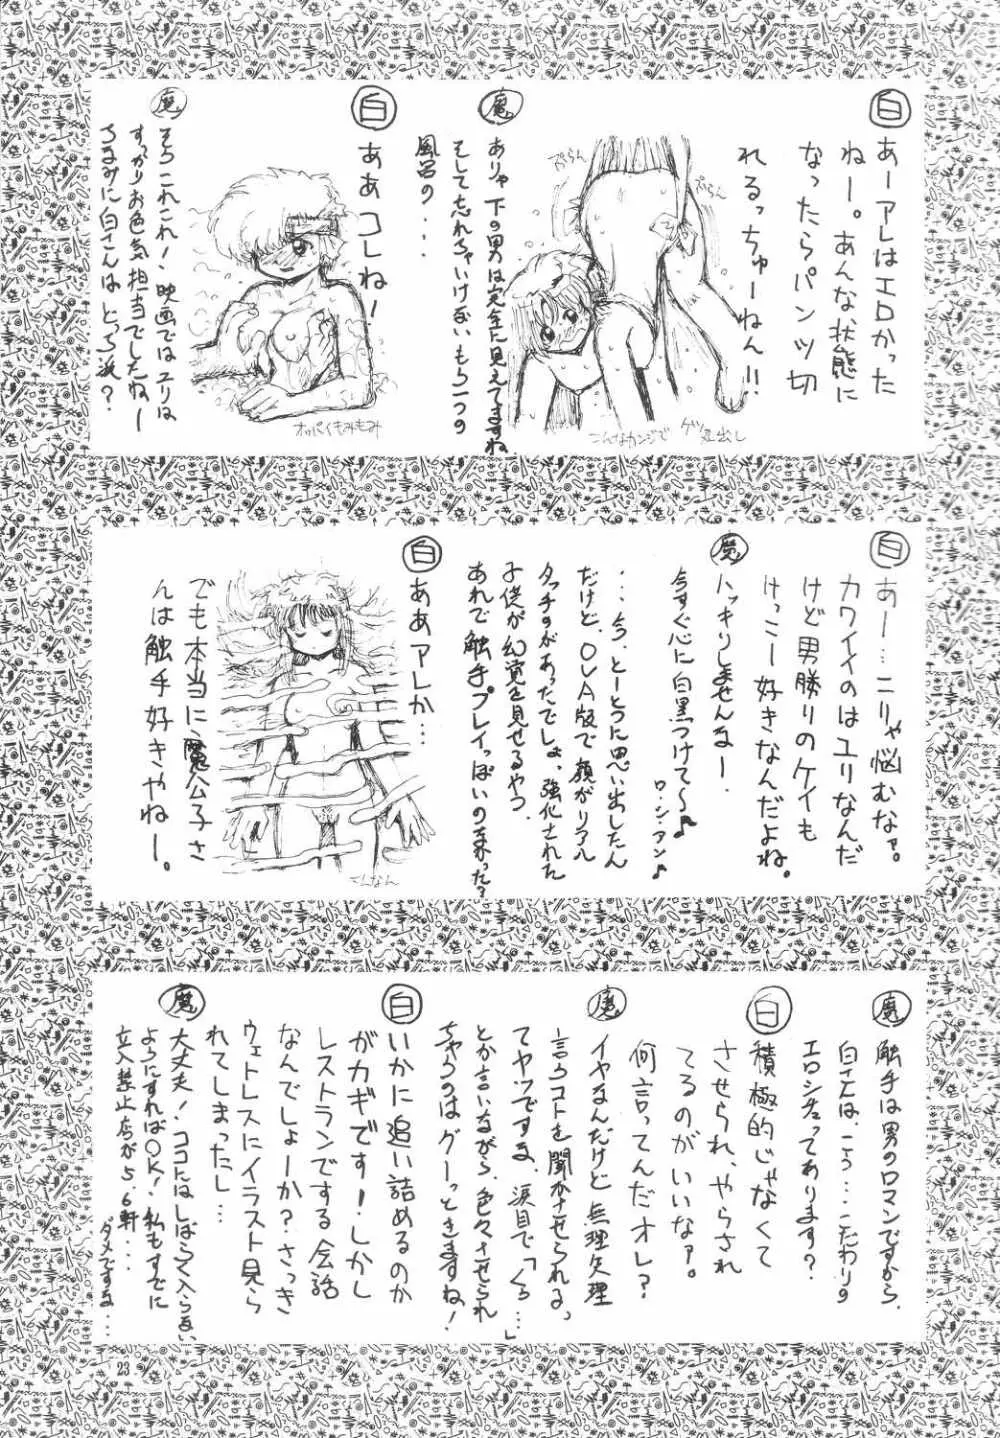 白
あーアレはエロかった
ねー。あんな状態に
なったらパンツ切
れるっちゅーねん!!
ぷらん
ぷらん
こんなカンジで
ゲソ足出し
魔
ありゃ下の男は完全に見えてますね
そして忘れちゃいけないもう一つの
風呂の・・・
白
ああコレねー
オッパイもみもみ
魔
そうこれこれ!映画ではユリは
すっかりお色気担当でしたねー
ちなみに白さんはどっち派?
白
あー…ニリャ悩むなァ。
カワイイのはユリなんだ
けど男勝りのケイも
けっこー好きなんだよね。
魔
ハッキリしませんなー
今すぐ心に白黒つけて〜♪
ロ・シ・アン♪
・・・今、とーとつに思い出したん
だけど、OVA版で顔がリアル
タッチすがあったでしょ、強化された
子供が幻覚を見せるやつ、
あれで触手プレイっぽいの来った?
白
ああアレか…
こんなん
でも本当に魔公子さ
んは触手好きやねー。
魔
触手は男のロマンですから、
白さんは、こう…こだわりの
エロシチュってあります?
白
積極的じゃなくて
させられ、やらされ
てるのがいいなァ。
何言ってんだオレ?
魔
イヤなんだけど無理矢理
言うコトを聞かせせられるっ
てヤツですな、涙目で「くぅ…」
とか言いながら、色々させられ
ちゃうのはグーっときますね!
白
いかに追い詰めるのか
がカギです!しかし
レストランでする会話
なんでしょーか?さっき
ウェトレスにイラスト見ら
れてしまったし…
魔
大丈夫!ココにはしばらく入らない
ようにすればOK!私もすでに
立入禁止店が5、6軒…
ダメですな…
23